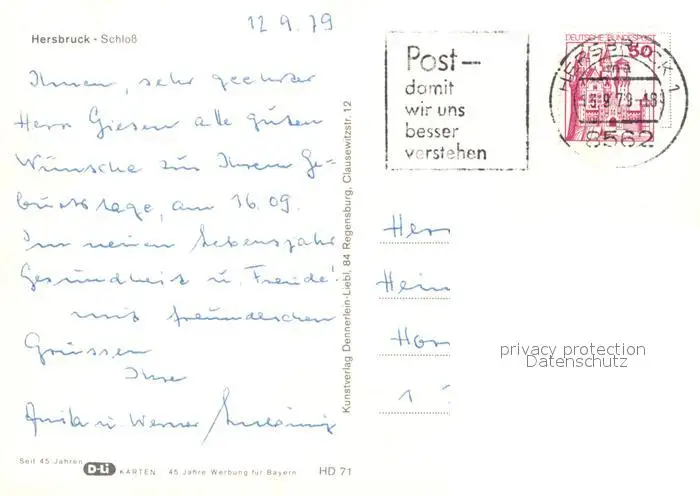 12.9.79
Hersbruck - Schloß
Ihnen, sehr geehrter
Herr Giesen alle guten
Wünsche zu Ihrem Ge-
burtstage, am 16.09.
Im neuen Lebensjahr
Gesundheit u. Freude!
mit freundlichen
Grüssen
Ihre
u. Werner
Seit 45 Jahren
D-Li KARTEN 45 Jahre Werbung für Bayern HD 71
Kunstverlag Dennerlein-Liebl, 84 Regensburg, Clausewitzstr. 12
Post—
damit
wir uns
besser
verstehen
DEUTSCHE BUNDESPOST
50
HERSBRUCK 1
8562
Herr
Hein
Hor
1
privacy protection
Datenschutz